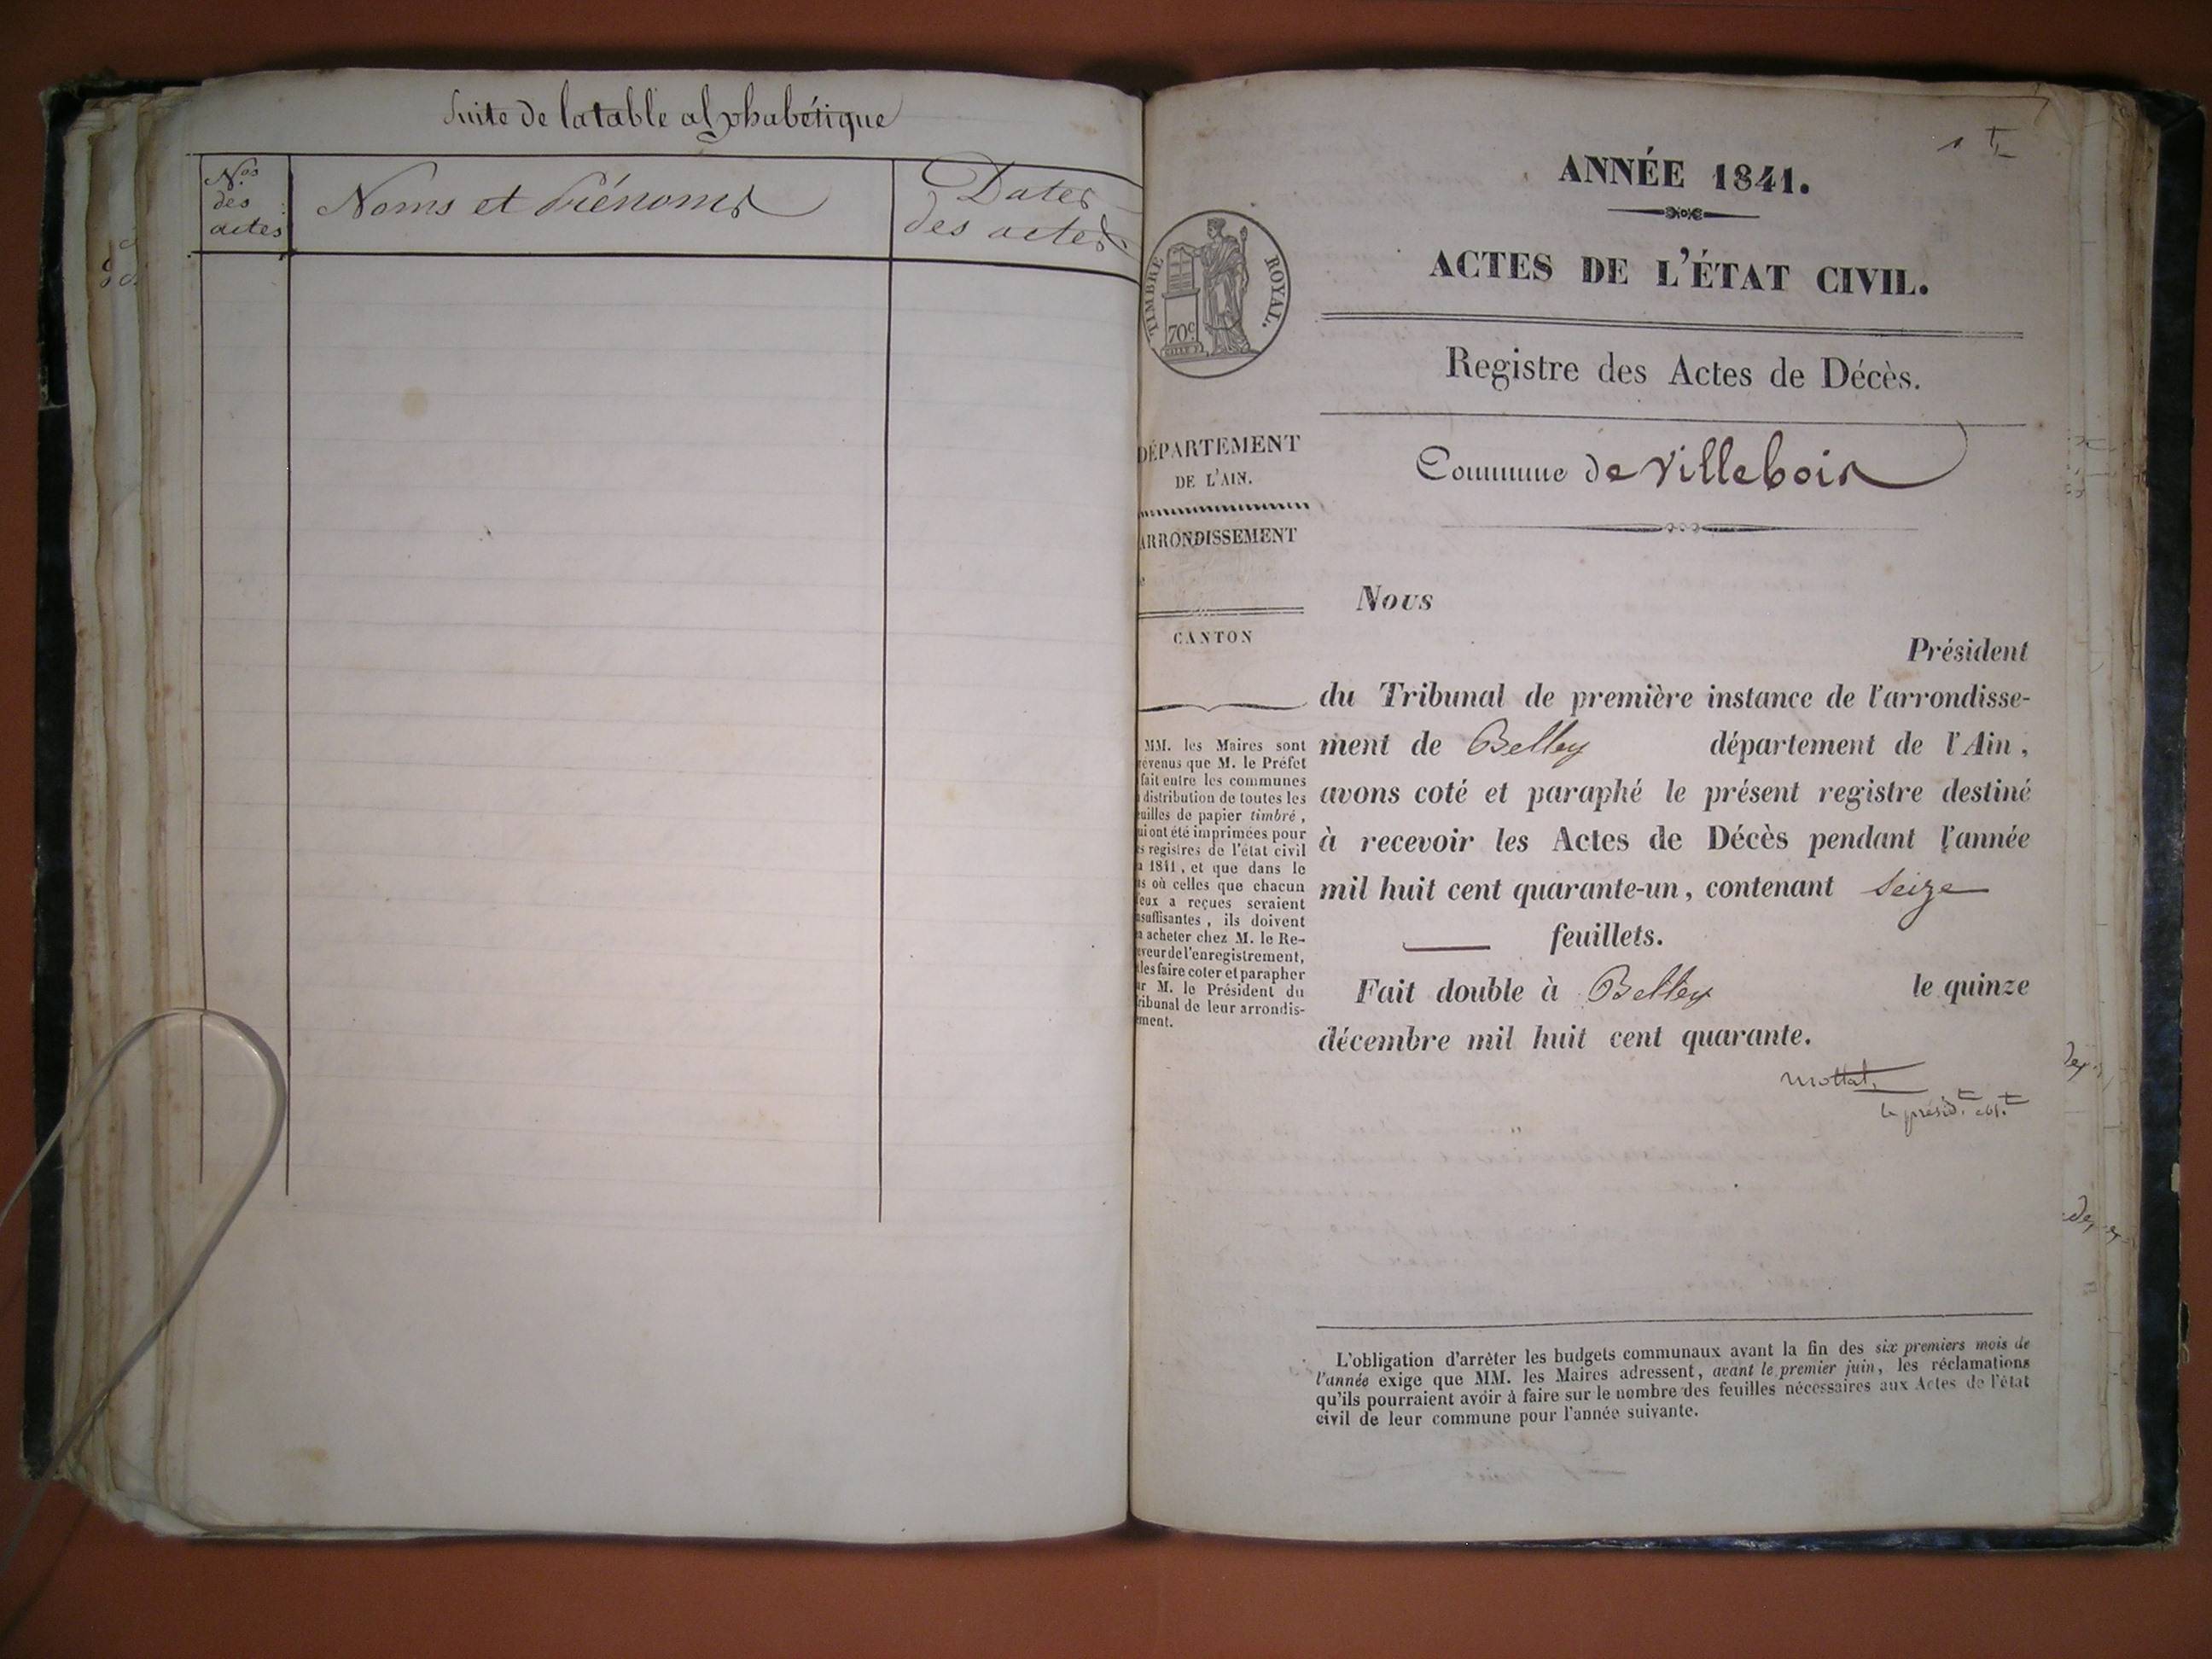 Suite de la table alphabétique
Nos
des
actes
Noms et Prénoms
Dates
des actes
ANNÉE 1841.
ACTES DE L'ÉTAT CIVIL.
TIMBRE ROYAL.
70c
Registre des Actes de Décès.
DÉPARTEMENT
DE L'AIN.
ARRONDISSEMENT
CANTON
MM. les Maires sont
révenus que M. le Préfet
fait entre les communes
distribution de toutes les
euilles de papier timbré,
ui ont été imprimées pour
s registres de l'état civil
1841, et que dans le
as où celles que chacun
eux a reçues seraient
nsuffisantes, ils doivent
n acheter chez M. le Re-
eveur de l'enregistrement,
les faire coter et parapher
ar M. le Président du
ribunal de leur arrondis-
ement.
Commune de Villebois
Nous
Président
du Tribunal de première instance de l'arrondisse-
ment de Belley département de l'Ain,
avons coté et paraphé le présent registre destiné
à recevoir les Actes de Décès pendant l'année
mil huit cent quarante-un, contenant seize
feuillets.
Fait double à Belley le quinze
décembre mil huit cent quarante.
Mottat
le présid.t abs.t
L'obligation d'arrêter les budgets communaux avant la fin des six premiers mois de
l'année exige que MM. les Maires adressent, avant le premier juin, les réclamations
qu'ils pourraient avoir à faire sur le nombre des feuilles nécessaires aux Actes de l'état
civil de leur commune pour l'année suivante.